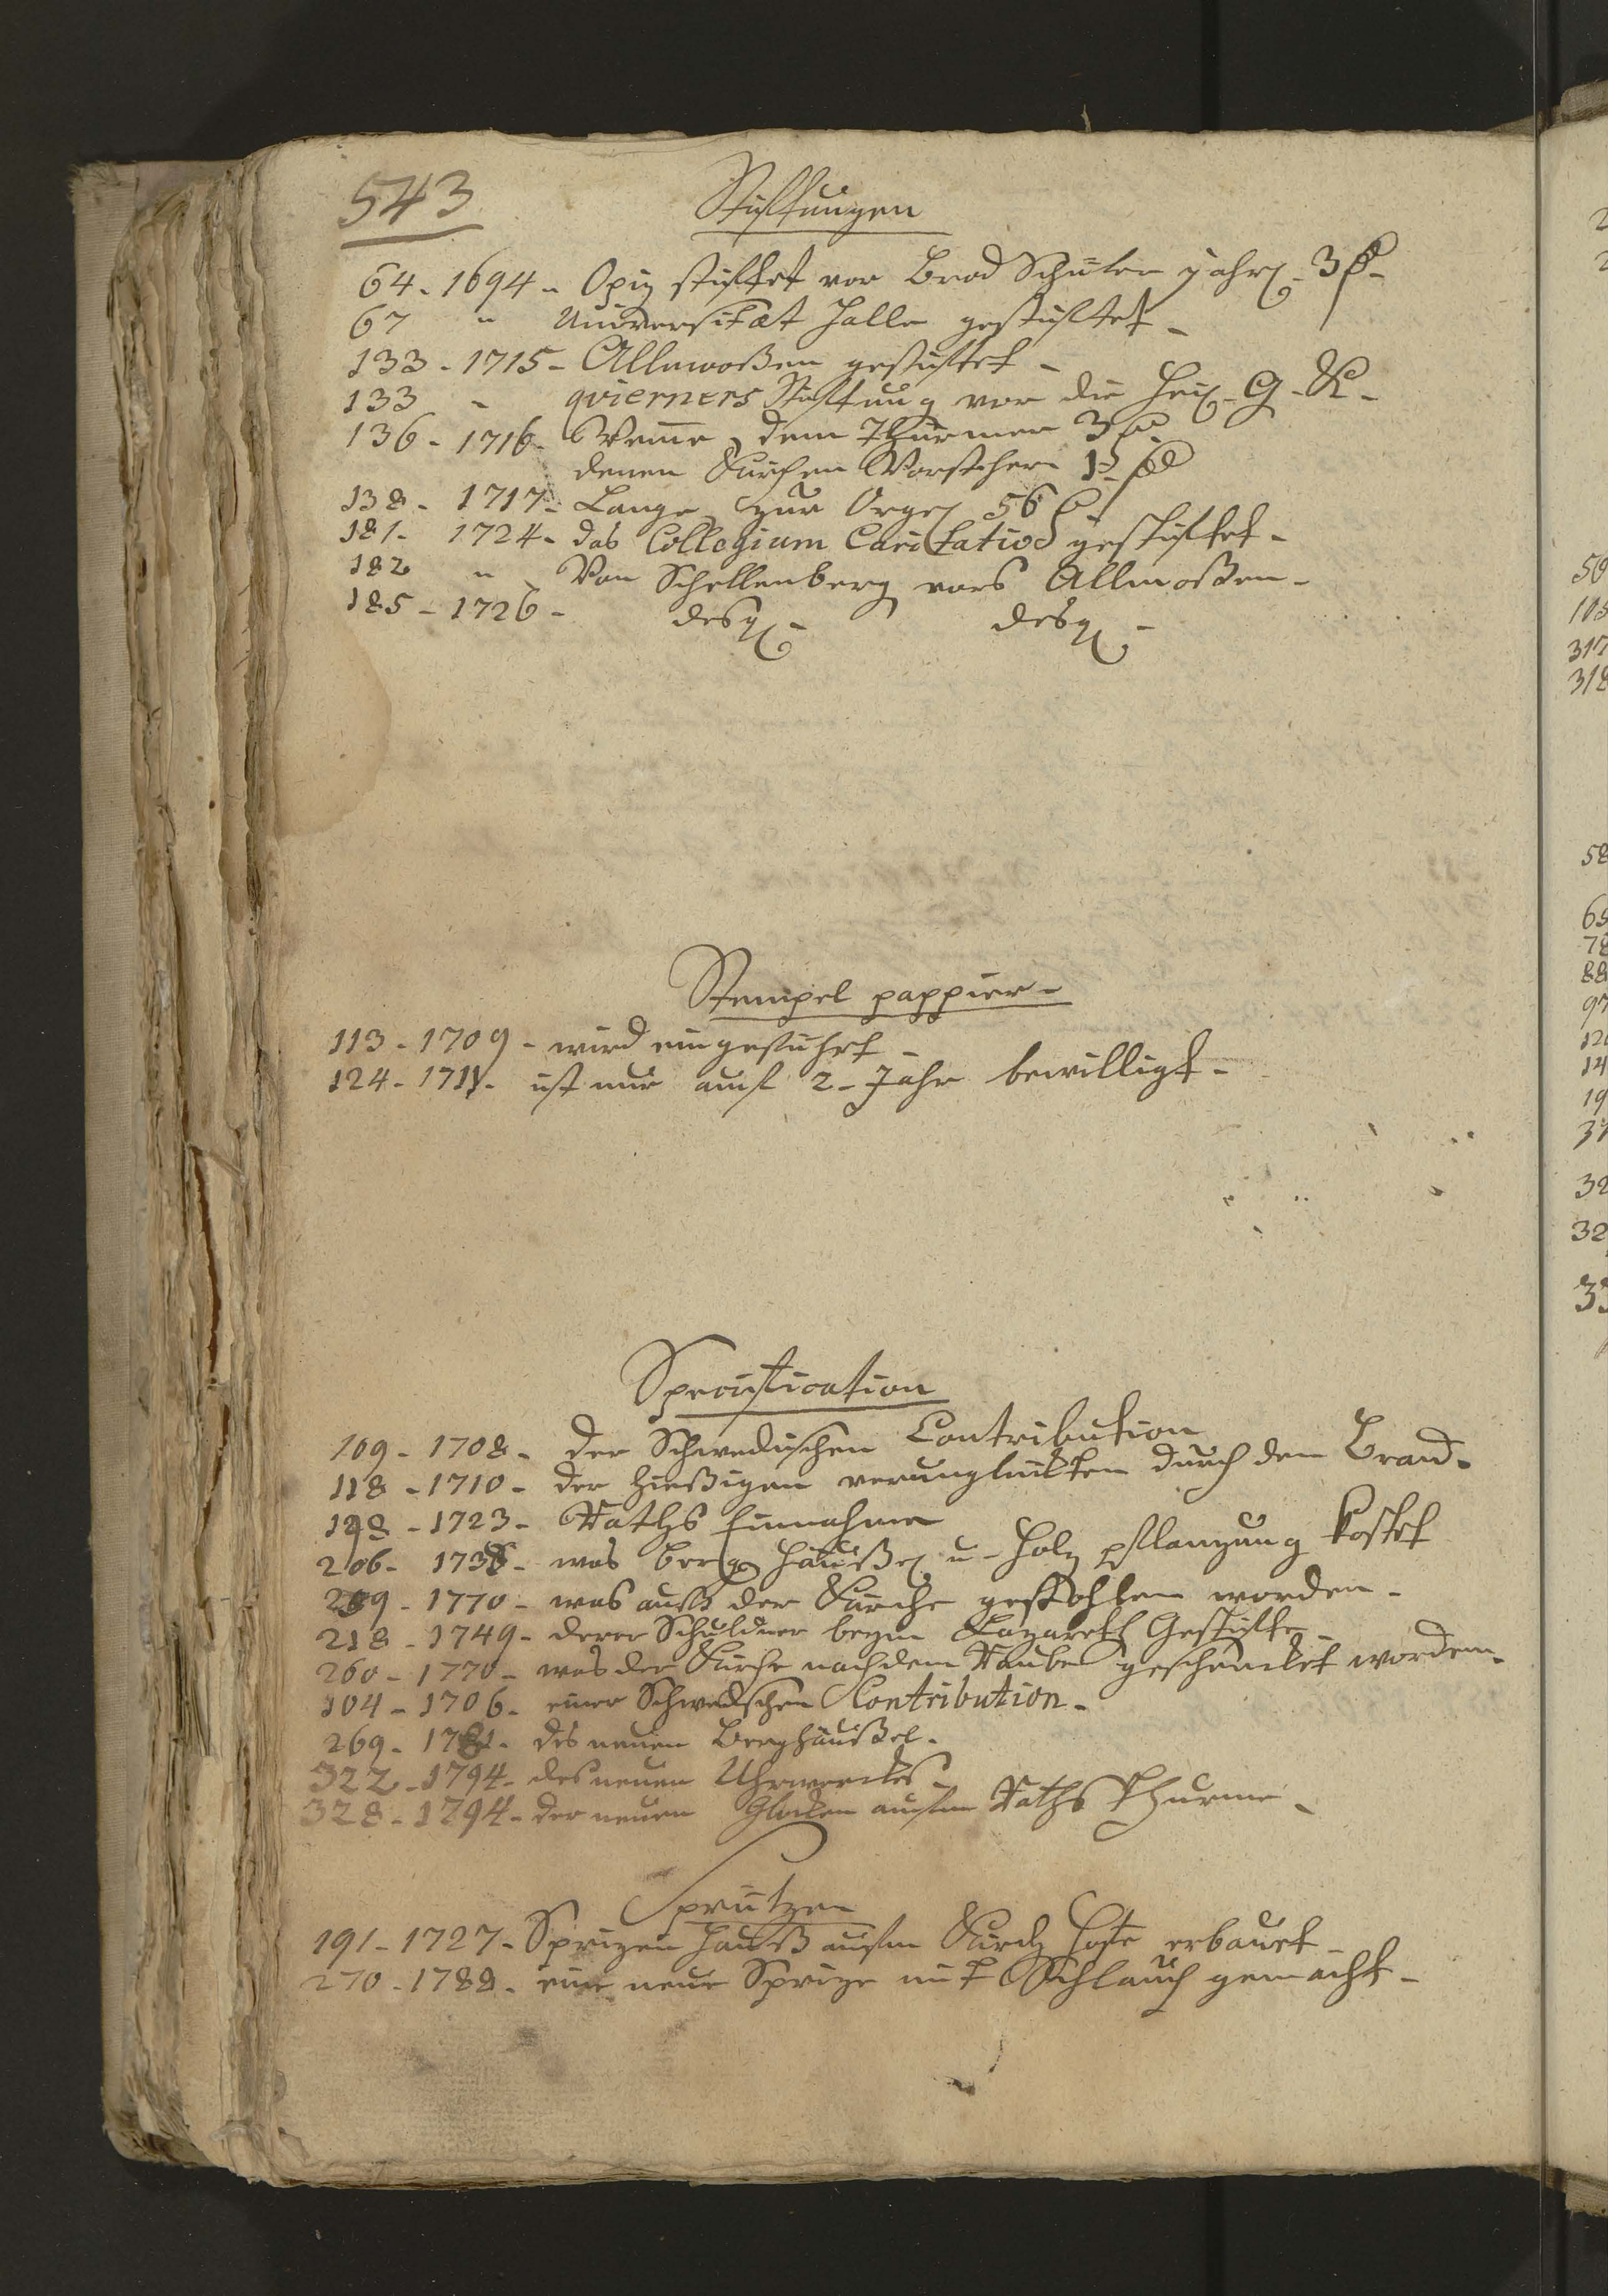 543
Stifftungen
64 - 1694 - Opiz stifftet vor Brod Schüler jährl. 3 f -
67 " Universitæt Halle gestifftet -
133 - 1715 - Allmoßen gestifftet -
133 - qvierners Stifftung vor die Heil. G. K. -
136 - 1716 - dem Thürmer 3
denen Kirchen Vorstehern
138 - 1717 - Lange zur Orgel 56
181 - 1724 - das Collegium Caritatios gestifftet -
182 " Von Schellenberg vors Allmoßen -
185 - 1726 - desgl. - desgl. -
Stempel pappier -
113 - 1709 - wird eingeführt -
124 - 1711 - ist nur auf 2 - Jahr bewilligt -
Specification
109 - 1708 - der Schwedischen Contribution
118 - 1710 - der hießigen verunglückten durch den Brand -
1723 - Raths Einnahme
206 - was Berg Häußel u - Holz pflanzung kostet
1770 - was auß der Kirche gestohlen worden -
218 - 1749 - derer Schuldner beym Lazareth Gestiffte -
260 - 1770 - was der Kirche nach dem Raube geschencket worden -
104 - 1706 - einer Schwedschen Contribution -
269 - des neuen Berghäußel -
322 - 1794 - des neuen Uhrwerckes -
328 - 1794 - der neuen Glocken aufm Raths Thurme -
Sprützen
191 - 1727 - Sprizen Hauß aufm Kirch Hofe erbauet -
270 - 1788 - eine neue Sprize mit Schlauch gemacht -